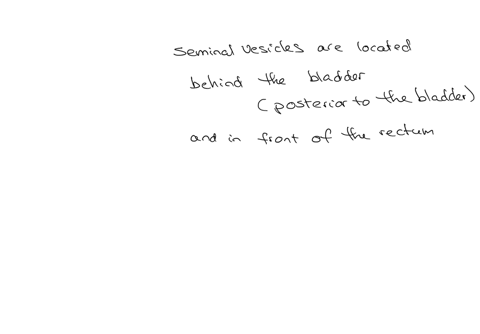 Seminal vesicles are located
behind the bladder
(posterior to the bladder)
and in front of the rectum